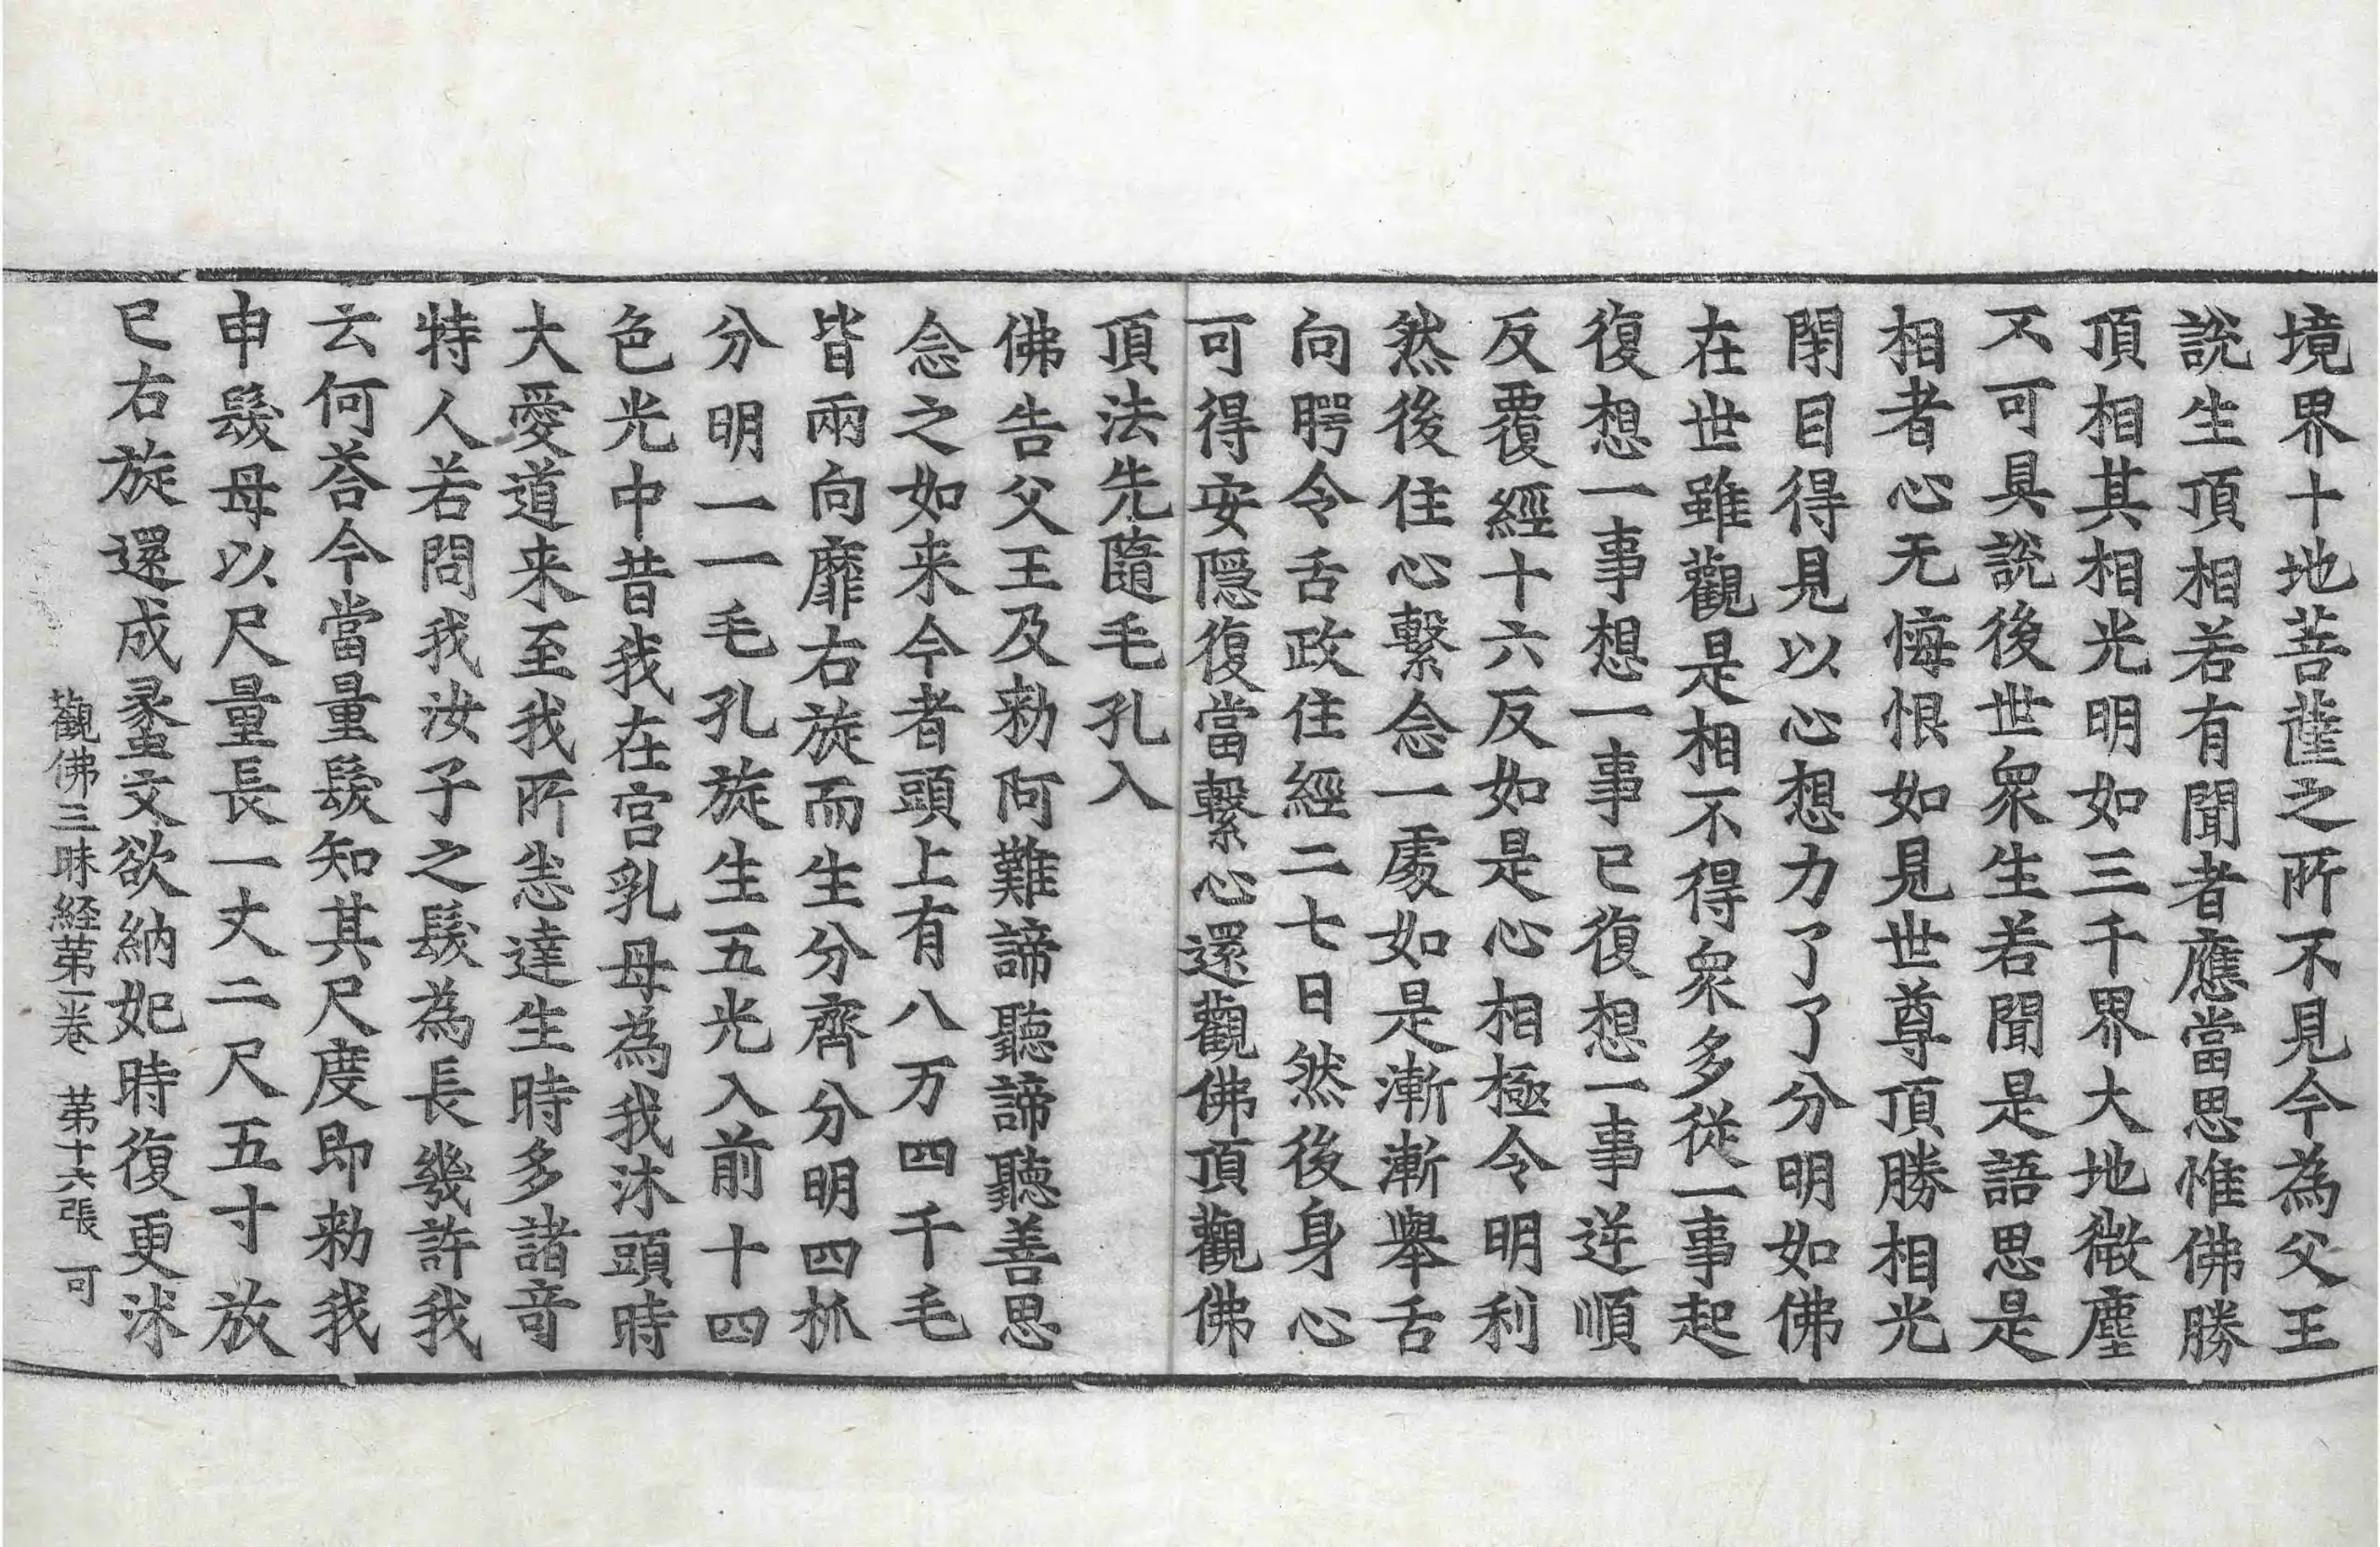 境界十地菩薩之所不見今為父王
說生頂相若有聞者應當思惟佛勝
頂相其相光明如三千界大地微塵
不可具說後世衆生若聞是語思是
相者心无悔恨如見世尊頂勝相光
閇目得見以心想力了了分明如佛
在世雖觀是相不得衆多從一事起
復想一事想一事已復想一事逆順
反覆經十六反如是心相極令明利
然後住心繫念一處如是漸漸舉舌
向腭令舌政住經二七日然後身心
可得安隱復當繫心還觀佛頂觀佛
頂法先隨毛孔入
佛告父王及勑阿難諦聽諦聽善思
念之如来今者頭上有八万四千毛
皆兩向靡右旋而生分齊分明四抓
分明一一毛孔旋生五光入前十四
色光中昔我在宮乳母為我沐頭時
大愛道来至我所悉達生時多諸竒
特人若問我汝子之髮為長幾許我
云何荅今當量髮知其尺度即勑我
申髮母以尺量長一丈二尺五寸放
已右旋還成蠡文欲納妃時復更沐
觀佛三昧経苐一卷 苐十六張 可